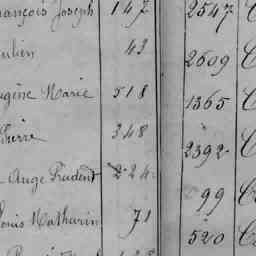 François Joseph 147 2547
Julien 43 2609
Eugène Marie 518 1365
Pierre 348 2392
Ange Prudent 224 99
Louis Mathurin 71 520